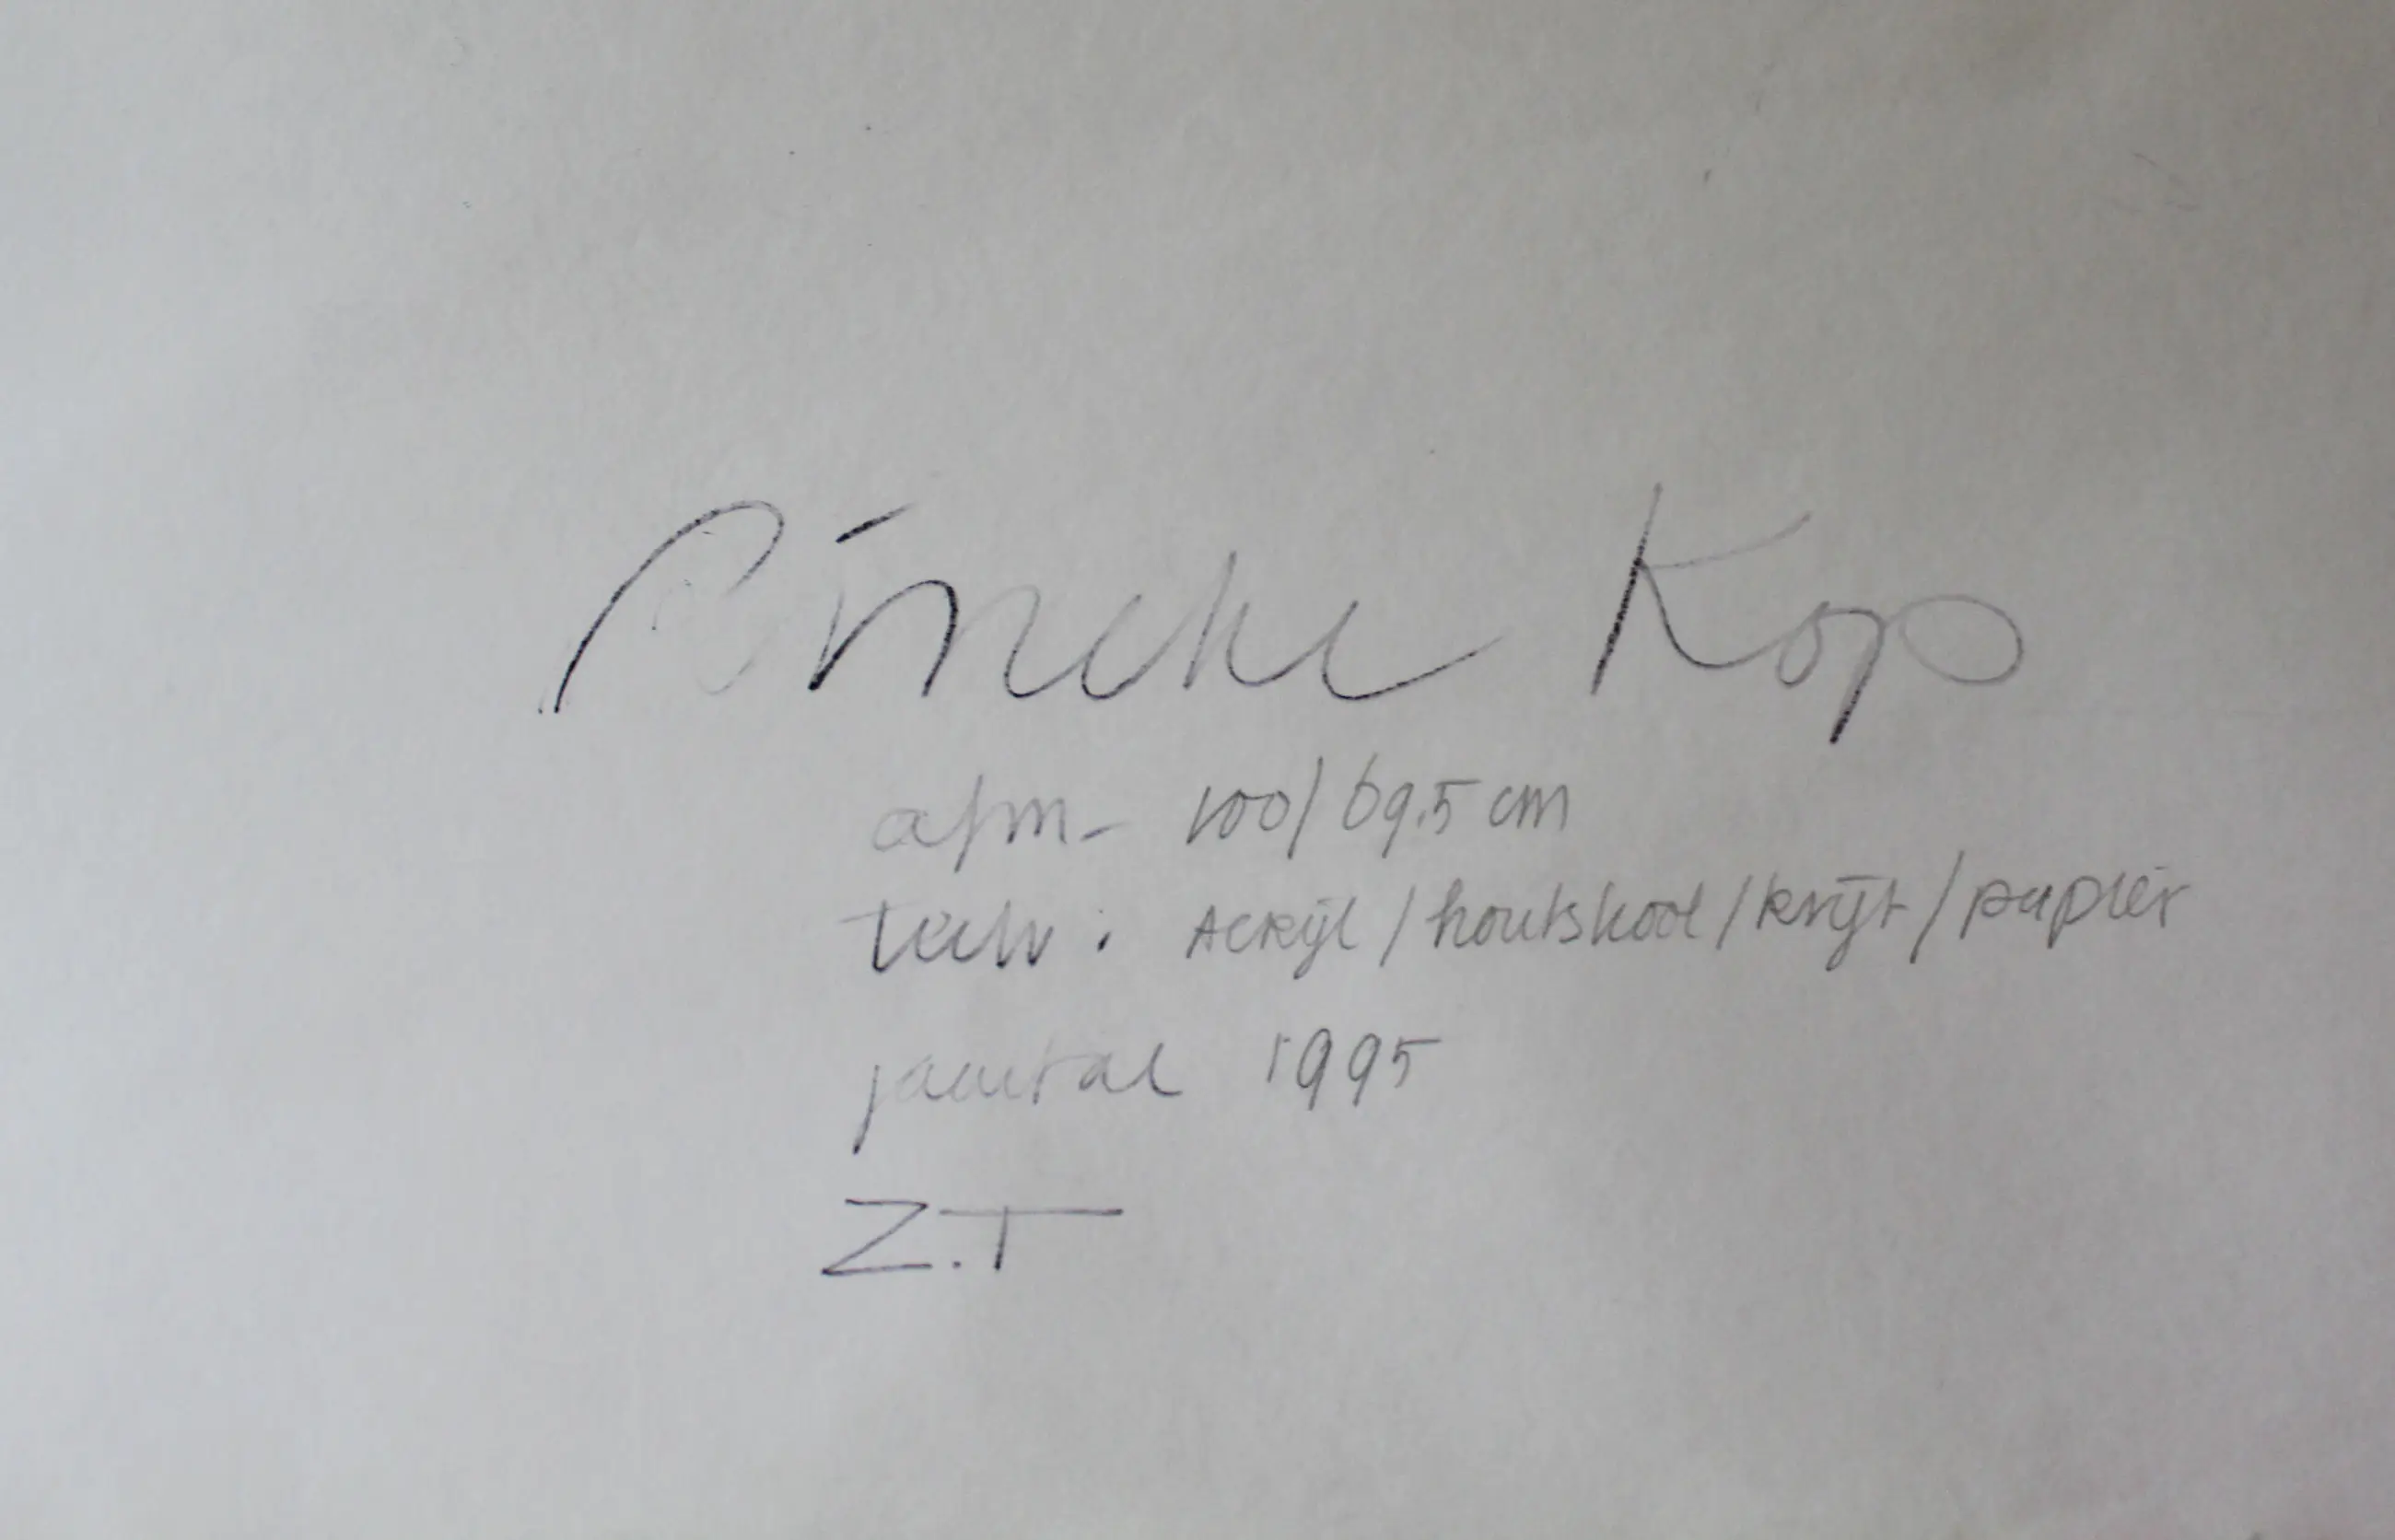 Rineke Kop
afm- 100/69.5 cm
tech: Acryl/houtskool/krijt/papier
jaartal 1995
Z.T